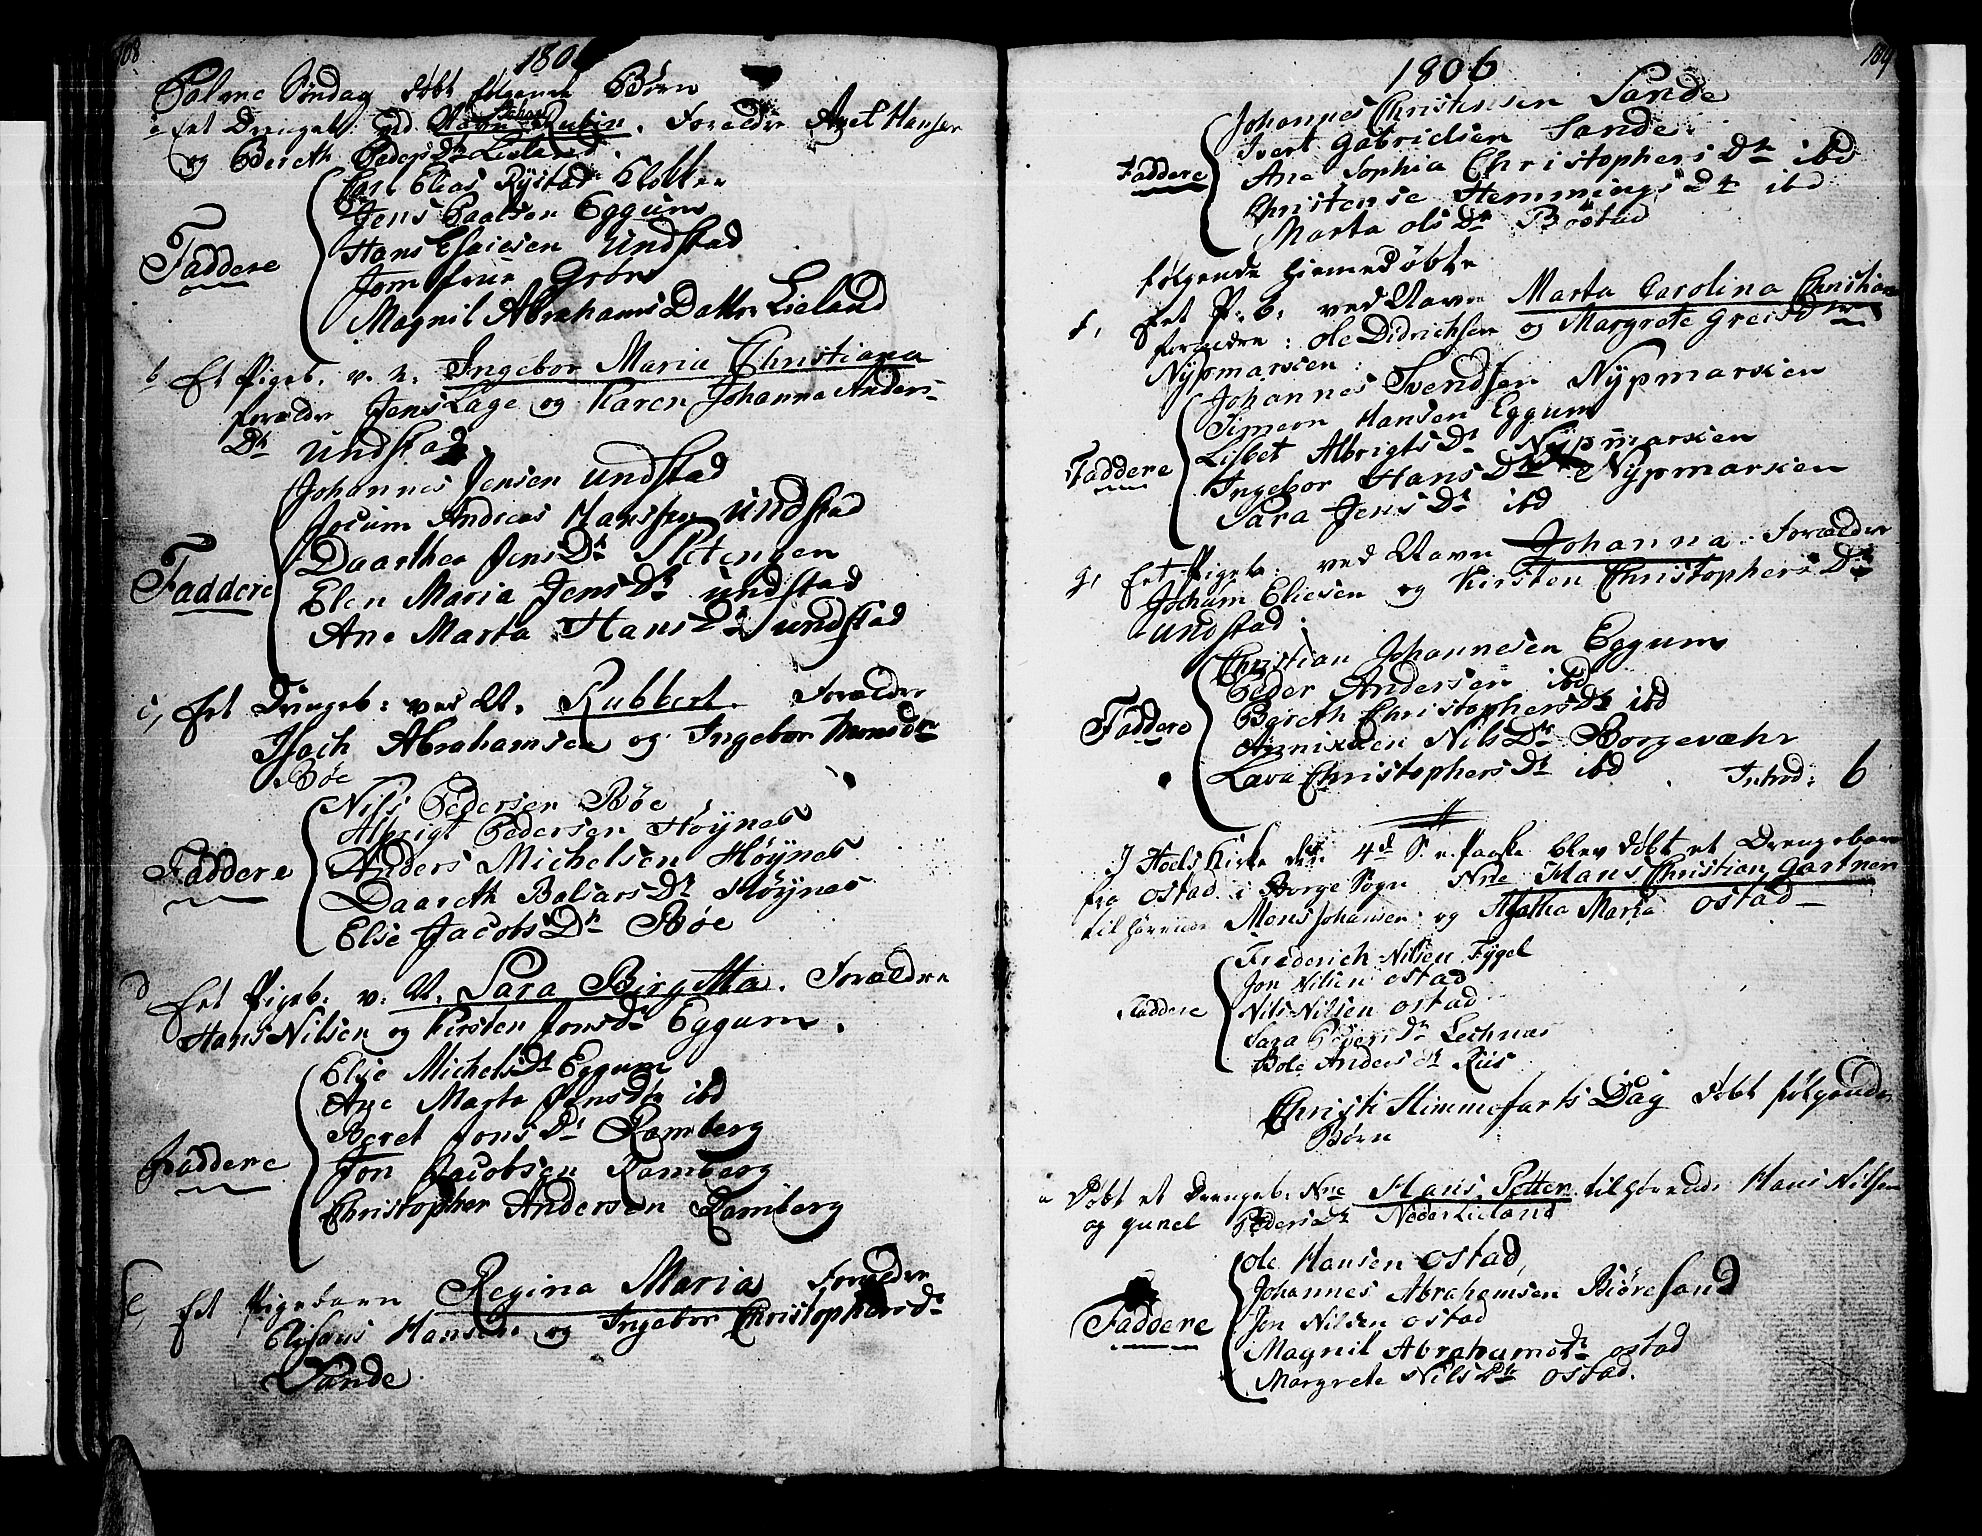 108
1806
Palme Søndag døbt følgende Børn
a Et Drengeb. ved Navn Rubin. Forældre Axel Hansen
og Bereth Peders Dtr Lieland.
Elias Rystad Klokker
Jens Paalsen Eggum
Hans Esaiesen Undstad
Faddere
Jomfrue Grøn
Magnil Abrahams Datter Lieland
b Et Pigeb. v. N. Ingebor Maria Christiana
forældre Jens Lage og Karen Johanna Anders-
Dtr Undstad
Johannes Jensen Undstad
Jocum Andreas Hanssen Undstad
Daarthea Jens Dtr Stetengen
Faddere
Elen Maria Jens Dtr Undstad
Ane Marta Hans Dtr Undstad
c, Et Drengeb: ved N. Rubbert. Forældre
Isach Abrahamsen og Ingebor Mons Dtr
Bøe
Nils Pedersen Bøe
Albrigt Pedersen Høynes
Faddere
Anders Michelsen Høynes
Daareth Balsars Dtr Høynes
Elise Jacobs Dtr Bøe
d Et Pigeb. v: N. Sara Birgitta. Forældre
Hans Nilsen og Kirsten Jonsdr Eggum.
Elise Michels Dtr Eggum
Ane Marta Jens Dtr ibd
Beret Jons Dtr Ramberg
Faddere
Jon Jacobsen Ramberg
Christopher Andersen Ramberg
e, Et Pigebarn Regina Maria Forældre
Elisæus Hansen og Ingebor Christophersdr
Sande.
109
1806
Johannes Christensen Sande
Ivert Gabrielsen Sande
Faddere
Ane Sophia Christophers Dtr ibd
Christense Hemmings Dtr ibd
Marta Ols Dtr Bøstad
følgende Hiemedøbte
f, Et P. b. ved Navn Marta Carolina Christian
forældre: Ole Didrichsen og Margrete Greisdtr
Nypmarken
Johannes Svendsen Nypmarken
Simeon Hansen Eggum
Faddere
Lisbet Albrigts Dr Nypmarken
Ingebor Hans Dtr Nypmarken
Sara Jens Dr ibd
g, Et Pigeb. ved Navn Johanna. Forældre
Jocham Eliesen og Kirsten Christophers Dtr
Undstad.
Christian Johannesen Eggum
Peder Andersen ibd
Faddere
Bereth Christophersdr ibd
Annikken Nils Dtr Borgevæhr
Lava Christophers Dr ibd Introd: 6
I Hoels Kirke den 4d S. e. Paaske blev døbt et Drengebarn
fra Ostad i Borge Sogn Nne Hans Christian Gartner
tilhørende Mons Johansen og Agatha Maria Ostad
Friderich Nilsen Fygel
Jon Nilsen Ostad
Faddere
Nils Nilsen Ostad
Sara Peders Dr Lechnæs
Bole Anders Dr Riis
Christi Himmefarts Dag døbt følgende
Børn
a Døbt et Drengeb. Nne Hans Petter tilhørende Hans Nilsen
og Gunel Pedersdr Nederlieland
Ole Hansen Ostad,
Johannes Abrahamsen Biøresand
Faddere
Jon Nilsen Ostad
Magnil Abrahamsdr Ostad
Margrete Nils Dtr Ostad.